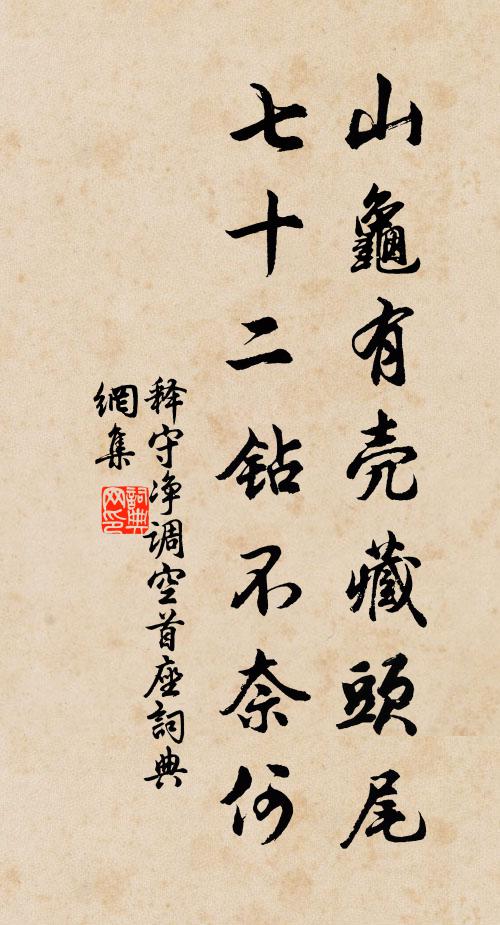 山龜有壳藏頭尾
七十二鉆不奈何
释守净調空首座詞典
網集
詞典
网印